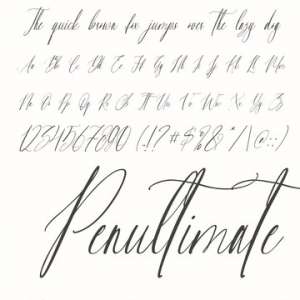 The quick brown fox jumps over the lazy dog
Aa Bb Cc Dd Ee Ff Gg Hh Ii Jj Kk Ll Mm
Nn Oo Pp Qq Rr Ss Tt Uu Vv Ww Xx Yy Zz
1234567890 (!?#$%&*/|\@:;)
Penultimate